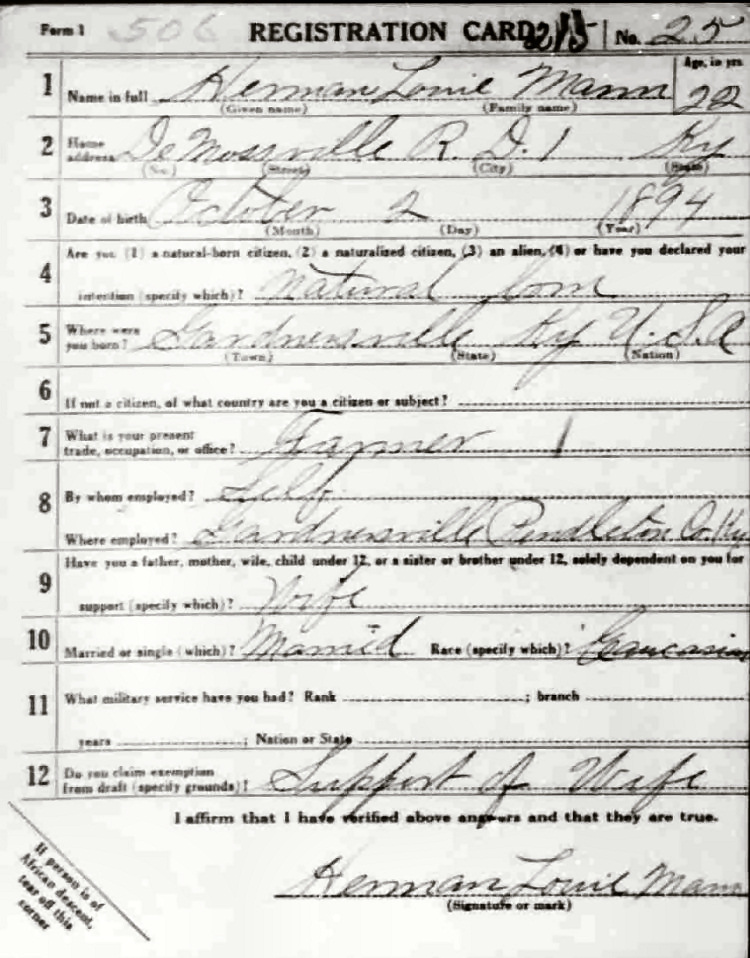 Form 1 506 REGISTRATION CARD No. 25
1 Name in full Herman Louie Mann Age, in yrs. 22
(Given name) (Family name)
2 Home address DeMossville R. D. 1 Ky
(No.) (Street) (City) (State)
3 Date of birth October 2 1894
(Month) (Day) (Year)
Are you (1) a natural-born citizen, (2) a naturalized citizen, (3) an alien, (4) or have you declared your
4 intention (specify which)? Natural born
5 Where were you born? Gardnersville Ky U.S.A
(Town) (State) (Nation)
6 If not a citizen, of what country are you a citizen or subject?
7 What is your present trade, occupation, or office? Farmer
8 By whom employed? Self
Where employed? Gardnersville Pendleton Co. Ky
Have you a father, mother, wife, child under 12, or a sister or brother under 12, solely dependent on you for
9 support (specify which)? Wife
10 Married or single (which)? Married Race (specify which)? Caucasian
11 What military service have you had? Rank ; branch
years ; Nation or State
12 Do you claim exemption from draft (specify grounds)? Support of Wife
I affirm that I have verified above answers and that they are true.
Herman Louie Mann
(Signature or mark)
If person is of
African descent,
tear off this
corner